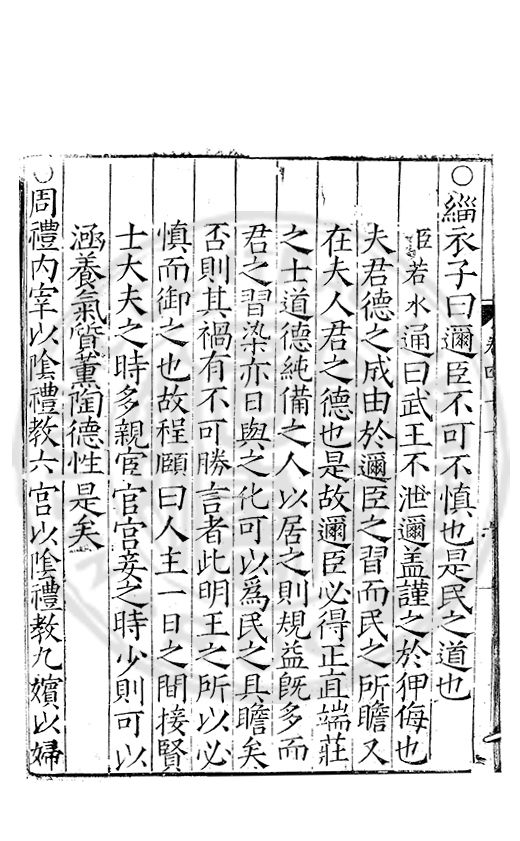 ○緇衣子曰邇臣不可不慎也是民之道也
臣若水通曰武王不泄邇盖謹之於狎侮也
夫君德之成由於邇臣之習而民之所瞻又
在夫人君之德也是故邇臣必得正直端莊
之士道德純備之人以居之則規益旣多而
君之習染亦日與之化可以爲民之具瞻矣
否則其禍有不可勝言者此明王之所以必
慎而御之也故程頤曰人主一日之間接賢
士大夫之時多親宦官宮妾之時少則可以
涵養氣質薰陶德性是矣
○周禮內宰以陰禮教六宮以陰禮教九嬪以婦